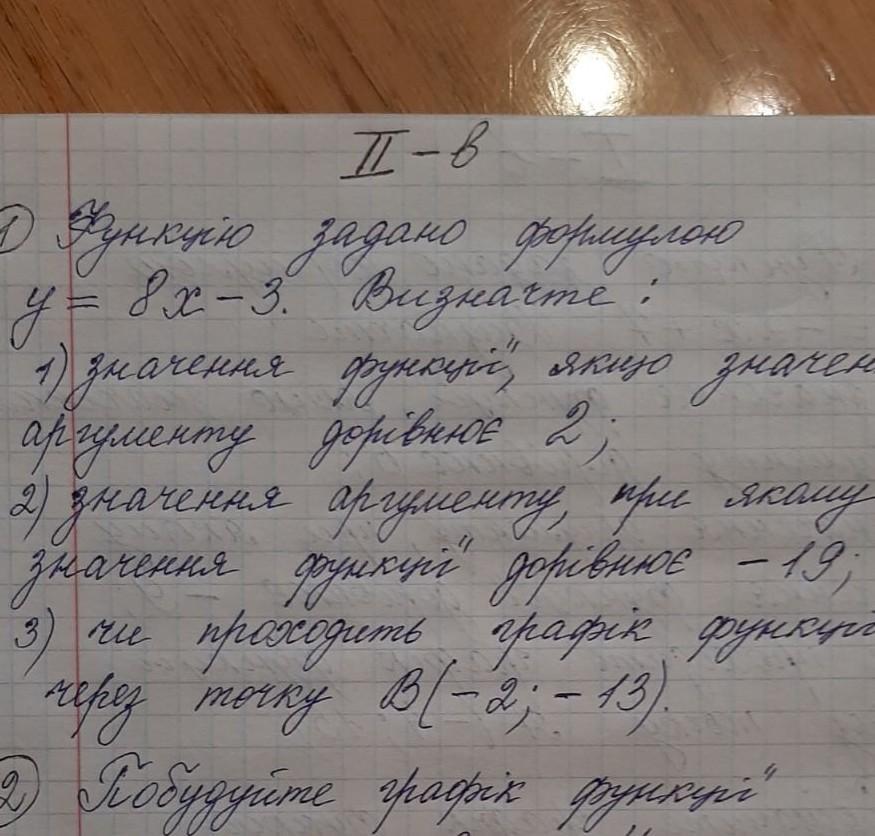 II - в
1 Функцію задано формулою
y = 8x - 3. Визначте:
1) значення функції, якщо значен
аргументу дорівнює 2;
2) значення аргументу, при якому
значення функції дорівнює -19;
3) чи проходить графік функції
через точку B(-2; -13).
2 Побудуйте графік функції